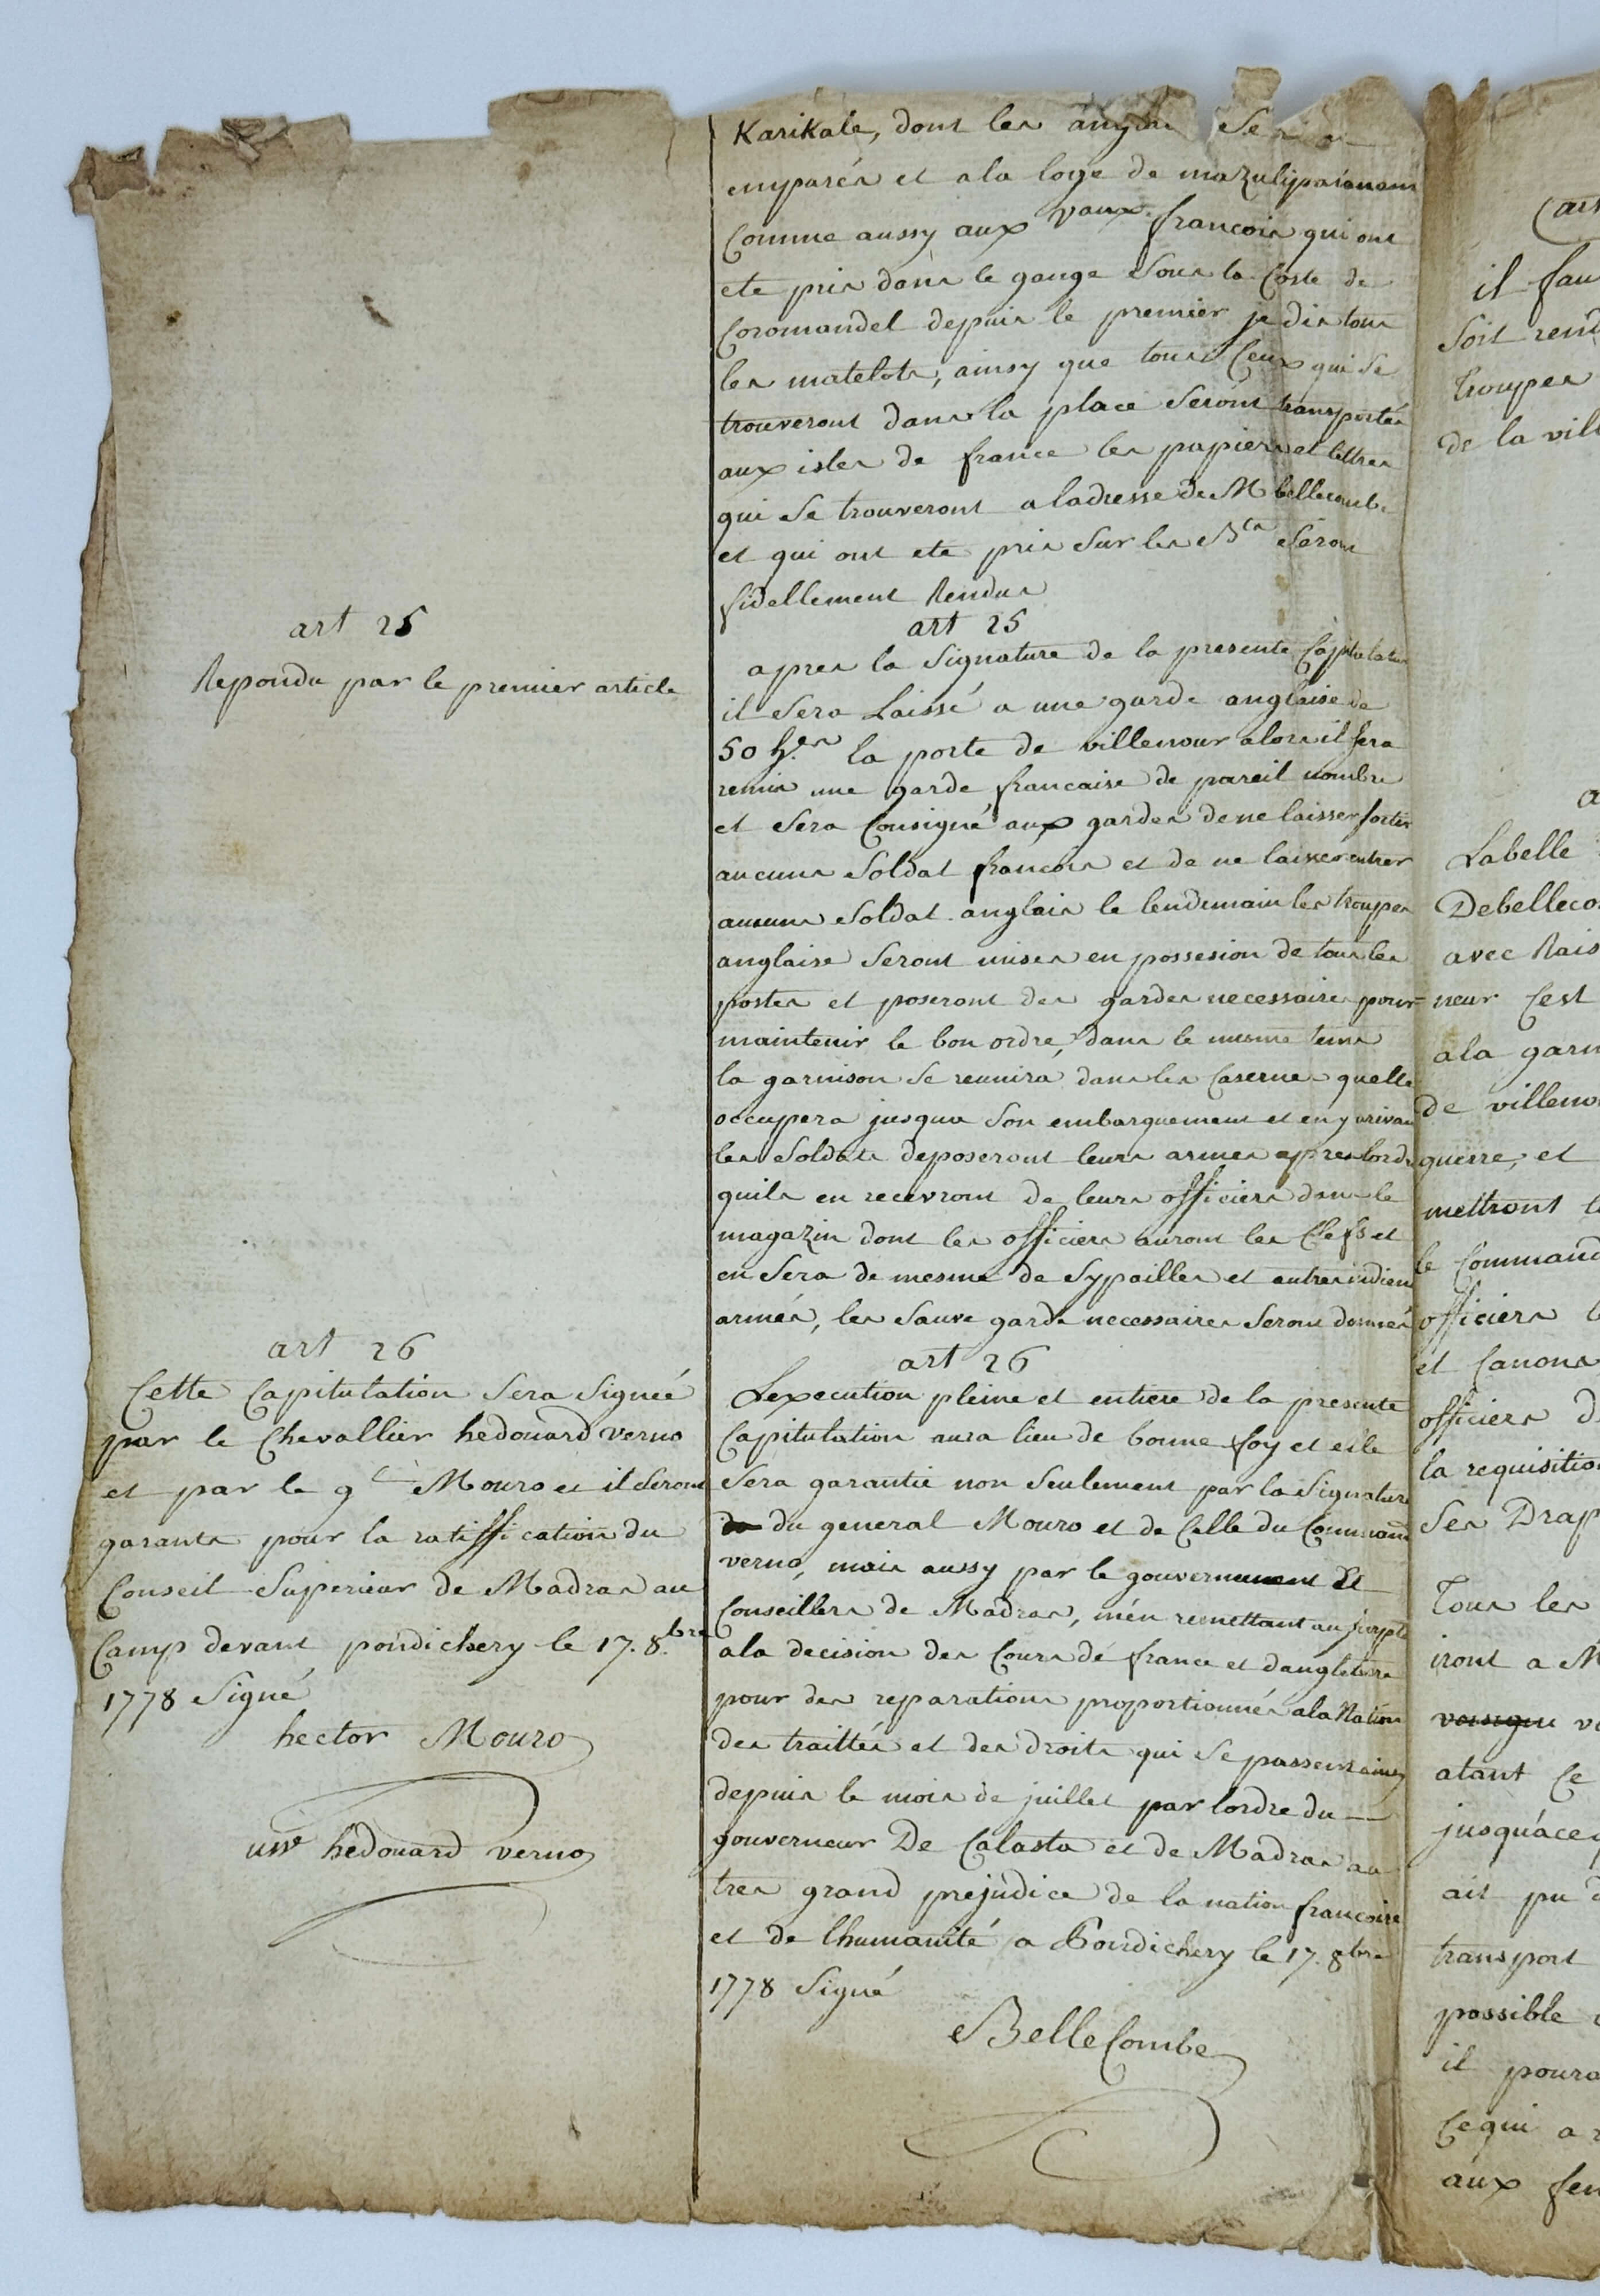 art 25
Repondu par le premier article
art 26
Cette Capitulation Sera Signée
par le Chevallier hedouard verno
et par le gl Mouro et il Seront
garants pour la ratiffication du
Conseil Superieur de Madras au
Camp devant pondichery le 17. 8.bre
1778 Signé
hector Mouro
hedouard verno
Karikale, dont les Se
emparés et a la loge de mazulipatanam
Comme aussy aux Vaux francois qui ont
ete pris dans le gange Sous la Coste de
Coromandel depuis le premier je dis tous
les matelots, ainsy que tous Ceux qui Se
trouveront dans la place Seront transportés
aux isles de france les papiers et lettres
qui Se trouveront a ladresse de M bellecombe
et qui ont ete pris Sur les Bts Seront
fidellement Rendus
art 25
apres la Signature de la presente Capitulation
il Sera Laissé a une garde anglaise de
50 h.es la porte de villenour alors il Sera
remis une garde francaise de pareil nombre
et Sera Consigné aux gardes de ne laisser sortir
aucuns Soldat francois et de ne laisser entrer
aucuns Soldat anglais le lendemain les troupes
anglaise Seront mises en possesion de tous les
postes et poseront des gardes necessaires pour
maintenir le bon ordre, dans le mesme tems
la garnison Se reunira dans les Casernes quelle
occupera jusqua Son embarquement et en y arivant
les Soldats deposeront leurs armes apres lordre
quils en recevront de leurs officiers dans le
magazin dont les officiers auront les Clefs et
en Sera de mesme de Sypailles et autres indiens
armés, les Sauve garde necessaires Seront donnés
art 26
Lexecution pleine et entiere de la presente
Capitulation aura lieu de bonne foy et elle
Sera garantie non Seulement par la Signature
du general Mouro et de Celle du Command
verno, mais aussy par le gouvernement Et
Conseillers de Madras, men remettant au Surplus
a la decision des Cours de france et dangleterre
pour des reparations proportionnés a la Nation
des traittés et des droits qui Se passent ainsy
depuis le mois de juillet par lordre du
gouverneur De Calasta et de Madras au
tres grand prejudice de la nation francoise
et de lhumanité a Pondichery le 17. 8bre
1778 Signé
BelleCombe
il fau
Soit rend
troupes
de la vill
Labelle
Debelleco
avec Rais
neur Cest
a la garn
de villeno
guerre, et
mettront l
le Command
officiers l
et Canons
officiers d
la requisitio
Ses Drap
Tous les
iront a M
atant Ce
jusquáce
ait pu d
transport
possible
il poura
Cequi a
aux fem